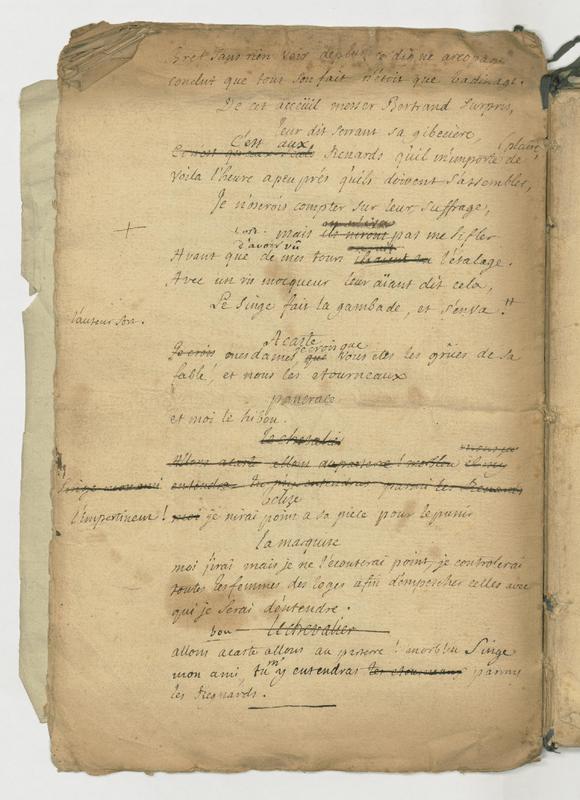 Bret sans rien voir de plus, ce digne aréopage
conclut que tout son fait n'étoit que badinage.
De cet acceüil messer Bertrand surpris,
leur dit serrant sa gibeciere,
(plaire,
C'est aux
Renards qu'il m'importe de
Voila l'heure apeu prés qu'ils doivent s'assembler,
Je n'oserois compter sur leur suffrage,
+
mais ils n'iront pas me sifler
d'avoir vû
Avant que de mes tours l'étalage.
Avec un ris mocqueur leur aïant dit cela,
Le Singe fait la gambade, et s'enva."
l'auteur sort.
Acaste
je crois que
Je crois mesdames, que vous etes les grües de sa
fable, et nous les etourneaux
et moi le hibou.
le chevalier
Allons acaste allons au parterre! morbleu
Singe mon ami entendras parmi les Renards
l'impertinent! moi je n'irai point a sa piece pour le punir
la marquise
moi j'irai mais je ne l'écouterai point, je controlerai
toutes les femmes des loges afin d'empecher celles avec
qui je serai d'entendre.
bon le chevalier
allons acaste allons au parterre! morbleu Singe
m'
mon ami, tu y entendras les etourneaux parmy
les Renards.